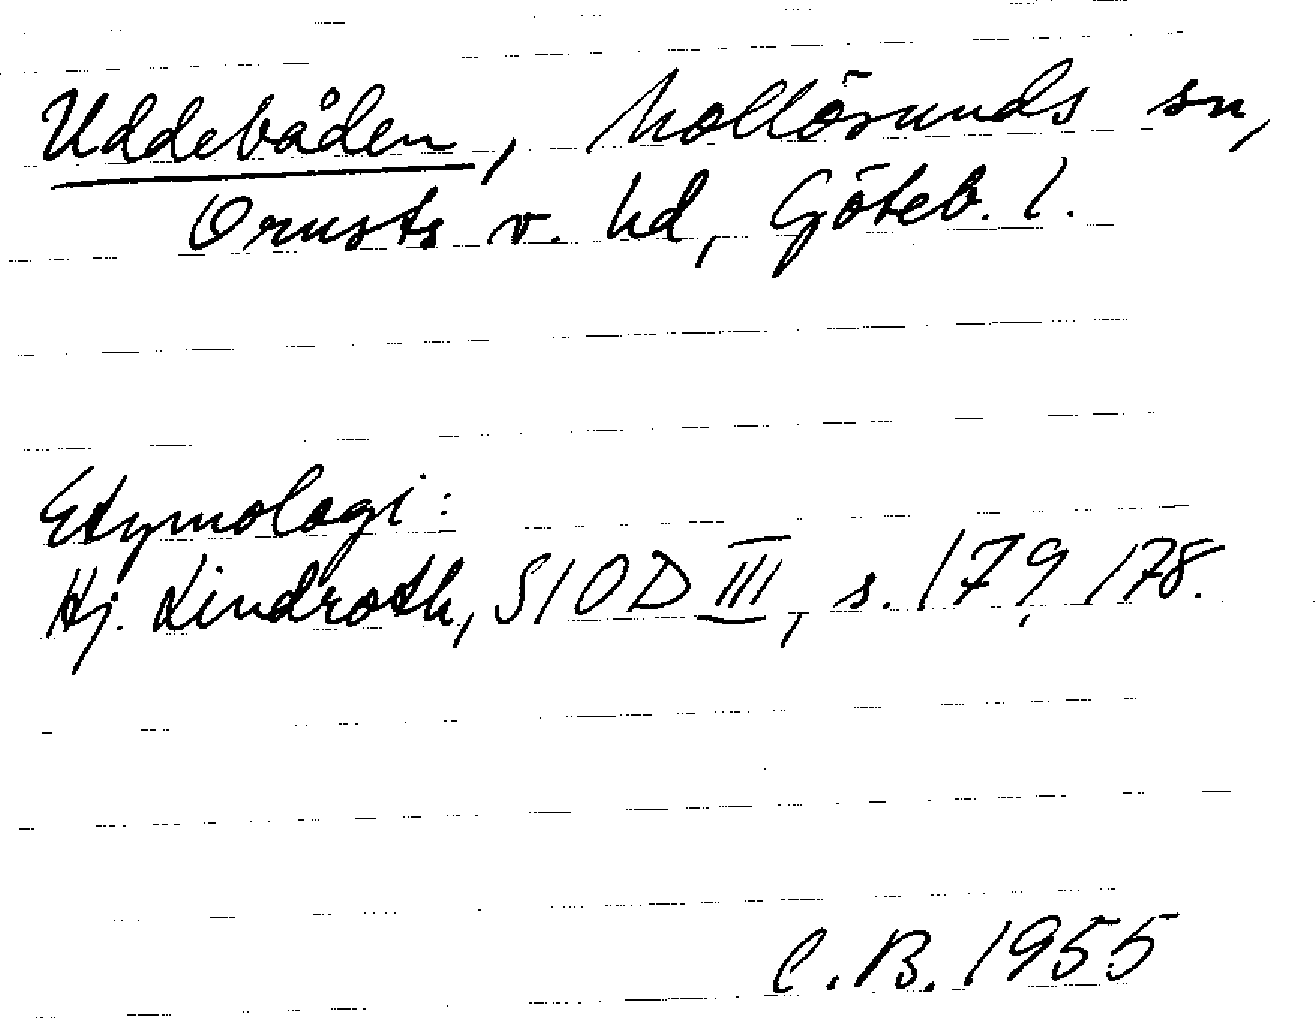 Uddebåden, Mollösunds sn,
Orusts v. hd, Göteb. l.
Etymologi:
Hj. Lindroth, SIOD III, s. 179, 178.
C. B. 1955